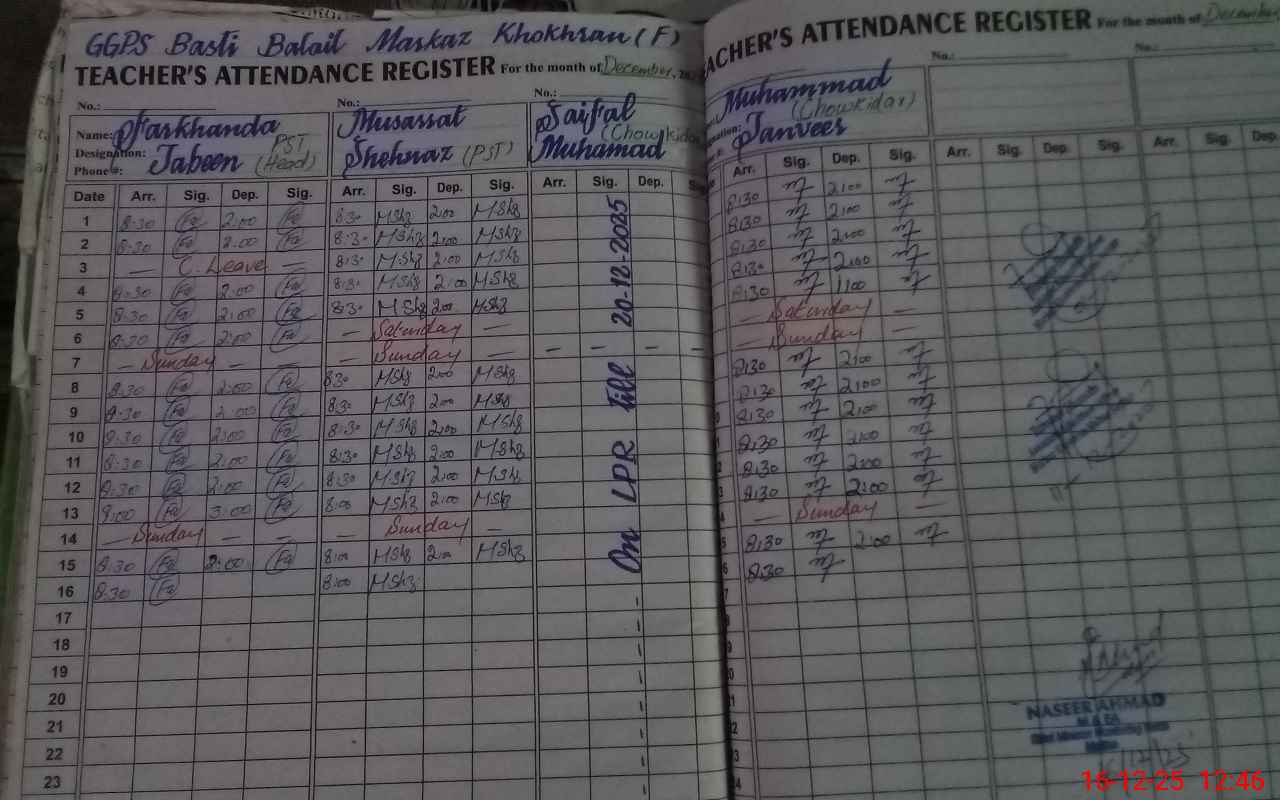 GGPS Basti Balail Markaz Khokhran (F)
TEACHER'S ATTENDANCE REGISTER For the month of December, 202
No.: No.: No.:
Name: Farkhanda Musarrat Saifal
Designation: Jabeen PST (Head) Shehnaz (PST) Muhamad (Chowkidar
Phone #:
Date Arr. Sig. Dep. Sig. Arr. Sig. Dep. Sig. Arr. Sig. Dep.
1 8:30 Fa 2:00 Fa 8:30 MShz 2:00 MShz
2 8:30 Fa 2:00 Fa 8:30 MShz 2:00 MShz
3 — C. Leave — 8:30 MShz 2:00 MShz
4 8:30 Fa 2:00 Fa 8:30 MShz 2:00 MShz
5 8:30 Fa 2:00 Fa 8:30 MShz 2:00 MShz
6 8:30 Fa 2:00 Fa — Saturday —
7 — Sunday — — — Sunday — — — — — —
8 8:30 Fa 2:00 Fa 8:30 MShz 2:00 MShz
9 8:30 Fa 2:00 Fa 8:30 MShz 2:00 MShz
10 8:30 Fa 2:00 Fa 8:30 MShz 2:00 MShz
11 8:30 Fa 2:00 Fa 8:30 MShz 2:00 MShz
12 8:30 Fa 2:00 Fa 8:30 MShz 2:00 MShz
13 9:00 Fa 3:00 Fa 8:00 MShz 2:00 MShz
14 — Sunday — — — Sunday —
15 8:30 Fa 2:00 Fa 8:00 MShz 2:00 MShz
16 8:30 Fa 8:00 MShz
17
18
19
20
21
22
23
On LPR till 20-12-2025
TEACHER'S ATTENDANCE REGISTER For the month of December
No.: No.:
Muhammad
(Chowkidar)
Tanveer
Arr. Sig. Dep. Sig. Arr. Sig. Dep. Sig. Arr. Sig. Dep.
8:30 2:00
8:30 2:00
8:30 2:00
8:30 2:00
8:30 1:00
— Saturday —
— Sunday —
8:30 2:00
8:30 2:00
8:30 2:00
8:30 2:00
8:30 2:00
8:30 2:00
— Sunday —
8:30 2:00
8:30
NASEER AHMAD
16/12/25
16-12-25 12:46